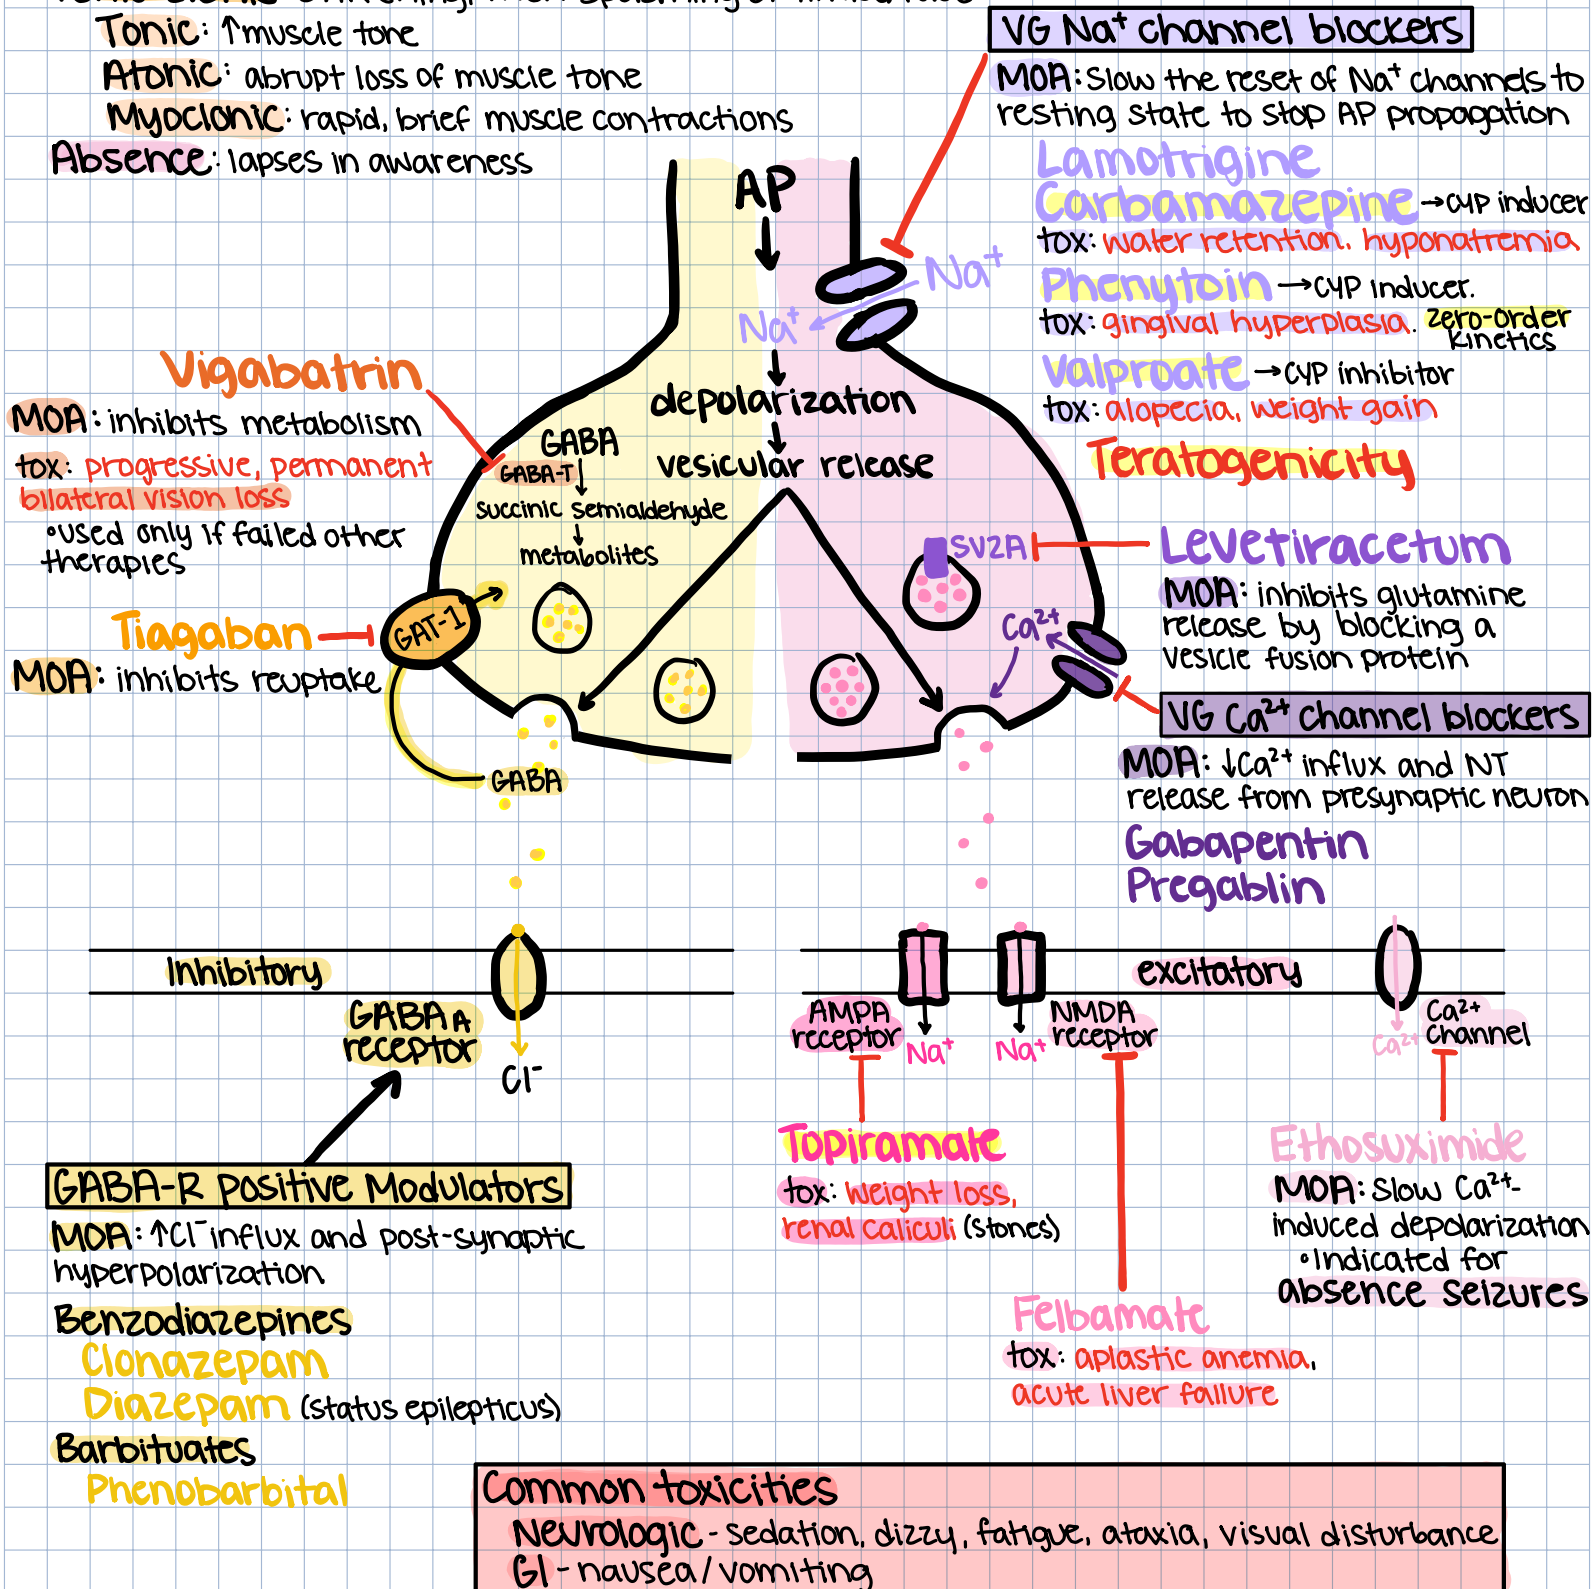 Tonic: ↑muscle tone
Atonic: abrupt loss of muscle tone
Myoclonic: rapid, brief muscle contractions
Absence: lapses in awareness
VG Na⁺ channel blockers
MOA: Slow the reset of Na⁺ channels to
resting state to stop AP propagation
Lamotrigine
Carbamazepine →CYP inducer
tox: water retention, hyponatremia
Phenytoin →CYP inducer.
tox: gingival hyperplasia. zero-order
kinetics
Valproate →CYP inhibitor
tox: alopecia, weight gain
Teratogenicity
AP
Na⁺
Na⁺
depolarization
vesicular release
Vigabatrin
MOA: inhibits metabolism
tox: progressive, permanent
bilateral vision loss
•used only if failed other
therapies
GABA
GABA-T
succinic semialdehyde
metabolites
Tiagaban
MOA: inhibits reuptake
GAT-1
GABA
SV2A
Levetiracetum
MOA: inhibits glutamine
release by blocking a
vesicle fusion protein
Ca²⁺
VG Ca²⁺ channel blockers
MOA: ↓Ca²⁺ influx and NT
release from presynaptic neuron
Gabapentin
Pregablin
Inhibitory
GABA A
receptor
Cl⁻
excitatory
AMPA
receptor
Na⁺
Na⁺
NMDA
receptor
Ca²⁺
Ca²⁺
channel
GABA-R positive Modulators
MOA: ↑Cl⁻ influx and post-synaptic
hyperpolarization
Benzodiazepines
Clonazepam
Diazepam (status epilepticus)
Barbituates
Phenobarbital
Topiramate
tox: weight loss,
renal caliculi (stones)
Felbamate
tox: aplastic anemia,
acute liver failure
Ethosuximide
MOA: Slow Ca²⁺-
induced depolarization
•Indicated for
absence seizures
Common toxicities
Neurologic - sedation, dizzy, fatigue, ataxia, visual disturbance
GI - nausea/vomiting